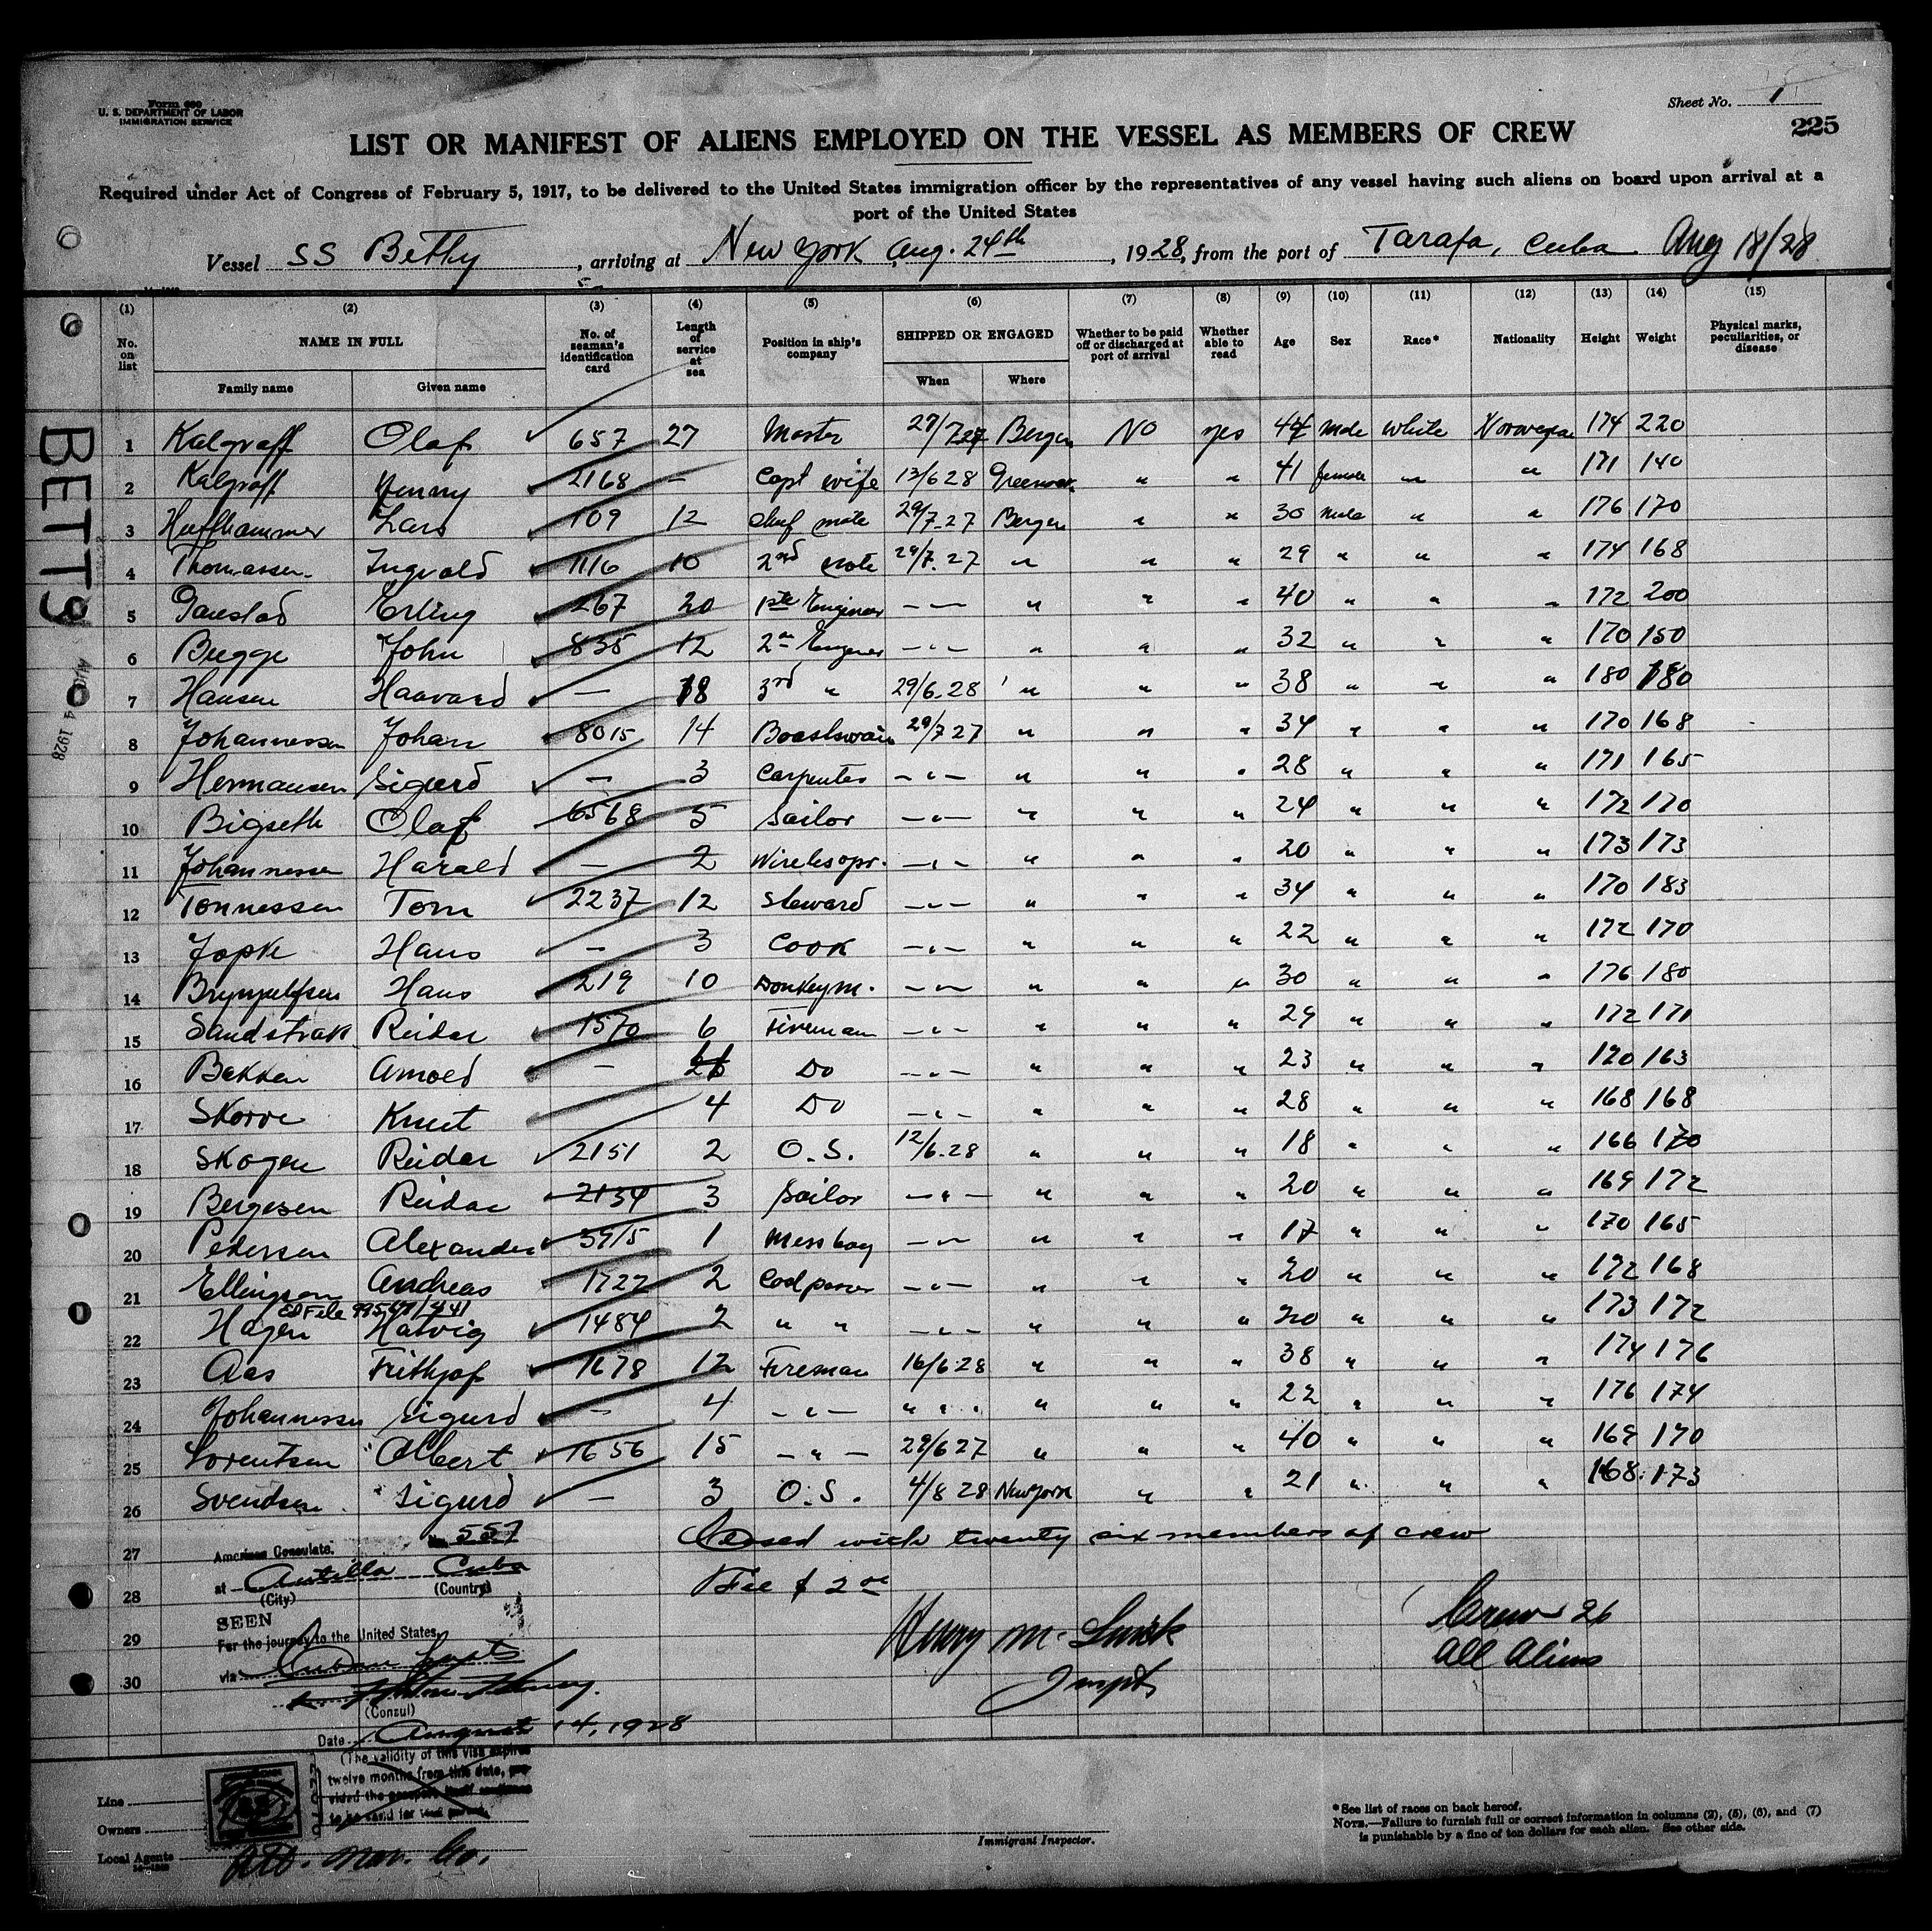 Form 680
U. S. DEPARTMENT OF LABOR
IMMIGRATION SERVICE
Sheet No. 1
225
LIST OR MANIFEST OF ALIENS EMPLOYED ON THE VESSEL AS MEMBERS OF CREW
Required under Act of Congress of February 5, 1917, to be delivered to the United States immigration officer by the representatives of any vessel having such aliens on board upon arrival at a
port of the United States
Vessel SS Betty, arriving at New York, Aug. 24th, 1928, from the port of Tarafa, Cuba Aug 18/28
(1) (2) (3) (4) (5) (6) (7) (8) (9) (10) (11) (12) (13) (14) (15)
No. on list NAME IN FULL No. of seaman's identification card Length of service at sea Position in ship's company SHIPPED OR ENGAGED Whether to be paid off or discharged at port of arrival Whether able to read Age Sex Race* Nationality Height Weight Physical marks, peculiarities, or disease
Family name Given name When Where
1 Kalgraff Olaf 657 27 Master 29/7 27 Bergen No yes 44 Male white Norwegian 174 220
2 Kalgraff Jenny 2168 — Capt wife 13/6 28 " " 41 female " " 171 140
3 Huffhammer Lars 109 12 Chief mate 29/7.27 Bergen " " 30 Male " " 176 170
4 Thomassen Ingvald 1116 10 2nd mate 29/7.27 " " " 29 " " " 174 168
5 Erling 267 20 1ste Engineer — " — " " " 40 " " " 172 200
6 Bugge John 835 12 2n Engineer — " — " " " 32 " " " 170 150
7 Hansen Haavard — 18 3rd " 29/6.28 " " " 38 " " " 180 180
8 Johannessen Johan 8015 14 Boastswain 29/7 27 " " " 34 " " " 170 168
9 Hermansen Sigurd — 3 Carpenter — " — " " " 28 " " " 171 165
10 Bigseth Olaf 6568 5 Sailor — " — " " " 24 " " " 172 170
11 Johannessen Harald — 2 Wirelesopr. — " — " " " 20 " " " 173 173
12 Tonnessen Tom 2237 12 Steward — " — " " " 34 " " " 170 183
13 Jopke Hans — 3 Cook — " — " " " 22 " " " 172 170
14 Hans 219 10 Donkeym. — " — " " " 30 " " " 176 180
15 Sandstrak Reidar 1570 6 Fireman — " — " " " 29 " " " 172 171
16 Bakken Arnold — Do — " — " " " 23 " " " 170 163
17 Skorve Knut 4 Do — " — " " " 28 " " " 168 168
18 Skogen Reidar 2151 2 O.S. 12/6.28 " " " 18 " " " 166 170
19 Bergesen Reidar 2134 3 Sailor — " — " " " 20 " " " 169 172
20 Pedersen Alexander 3915 1 Messboy — " — " " " 17 " " " 170 165
21 Ellingsen Andreas 1722 2 Coalpasser — " — " " " 20 " " " 172 168
22 Hagen Hatvig 1484 2 " " — " — " " " 20 " " " 173 172
23 Aas Frithjof 1678 12 Fireman 16/6 28 " " " 38 " " " 174 176
24 Johannessen Sigurd — 4 — " — " " " " " 22 " " " 176 174
25 Lorentsen Albert 1656 15 — " — 29/6 27 " " " 40 " " " 169 170
26 Svendsen Sigurd — 3 O.S. 4/8 28 New York " " 21 " " " 168 173
27 American Consulate. No. 557 Closed with twenty six members of crew
28 at Antilla Cuba Fee $2 00
(City) (Country)
SEEN
29 For the journey to the United States, Henry M. Crew 26
via All Aliens
30 Inspt
(Consul)
Date August 14, 1928
(The validity of this visa expires
twelve months from this date, pro-
vided the passport itself continues
to be valid for that period.
Line
Owners
Local Agents
*See list of races on back hereof.
NOTE.—Failure to furnish full or correct information in columns (2), (5), (6), and (7)
is punishable by a fine of ten dollars for each alien. See other side.
Immigrant Inspector.
BETTY
1928